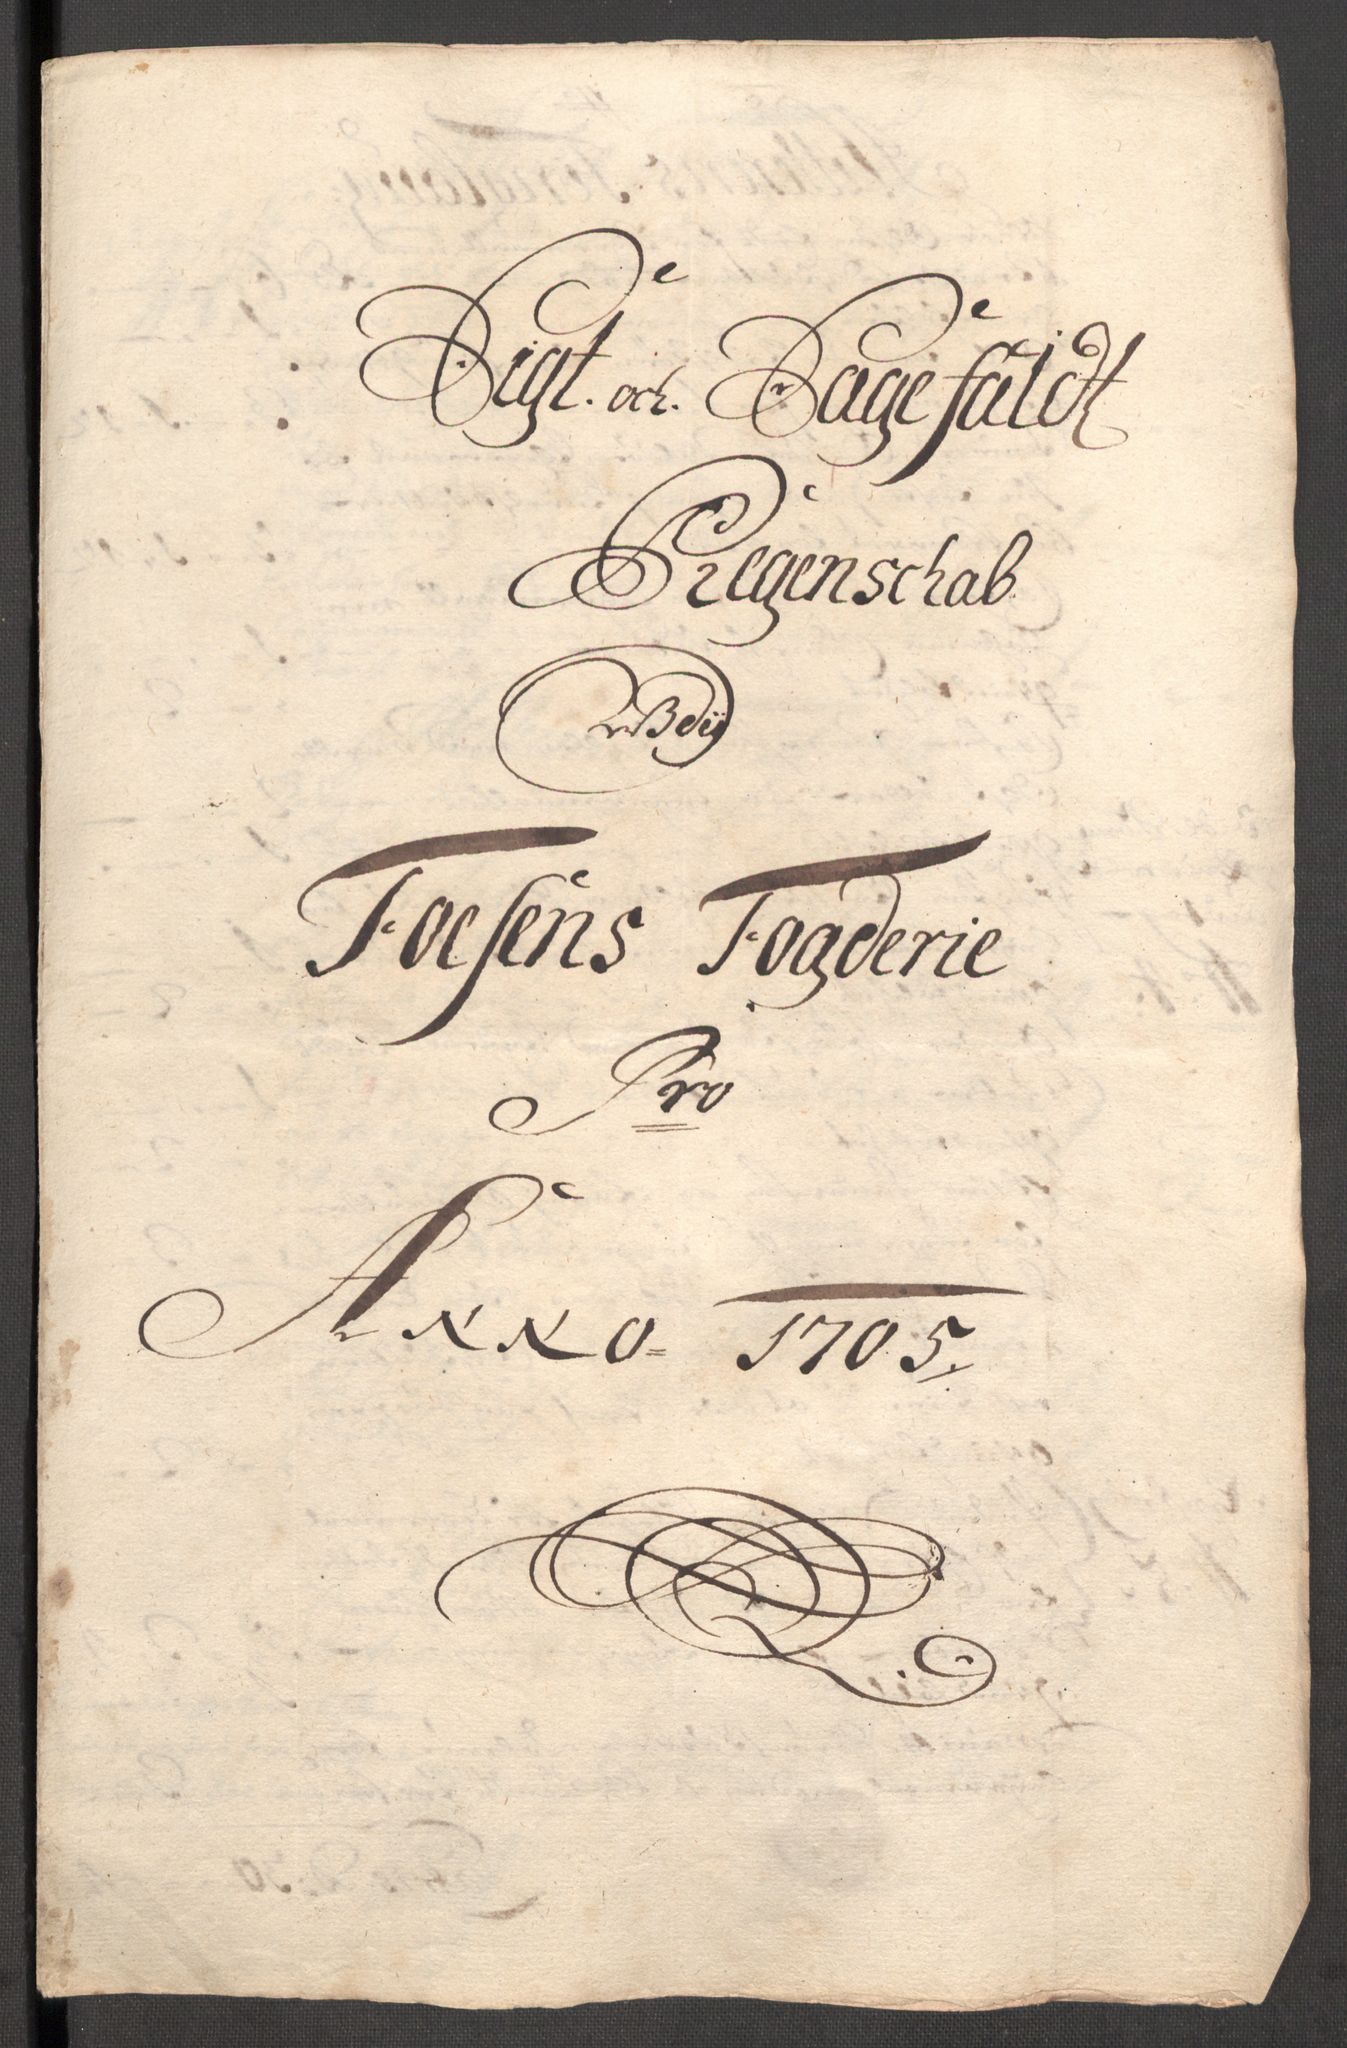 Sigt. och. Sagefaldt
Regenschab
Vdj
Foesens Fogderie
Pro
Anno 1705.